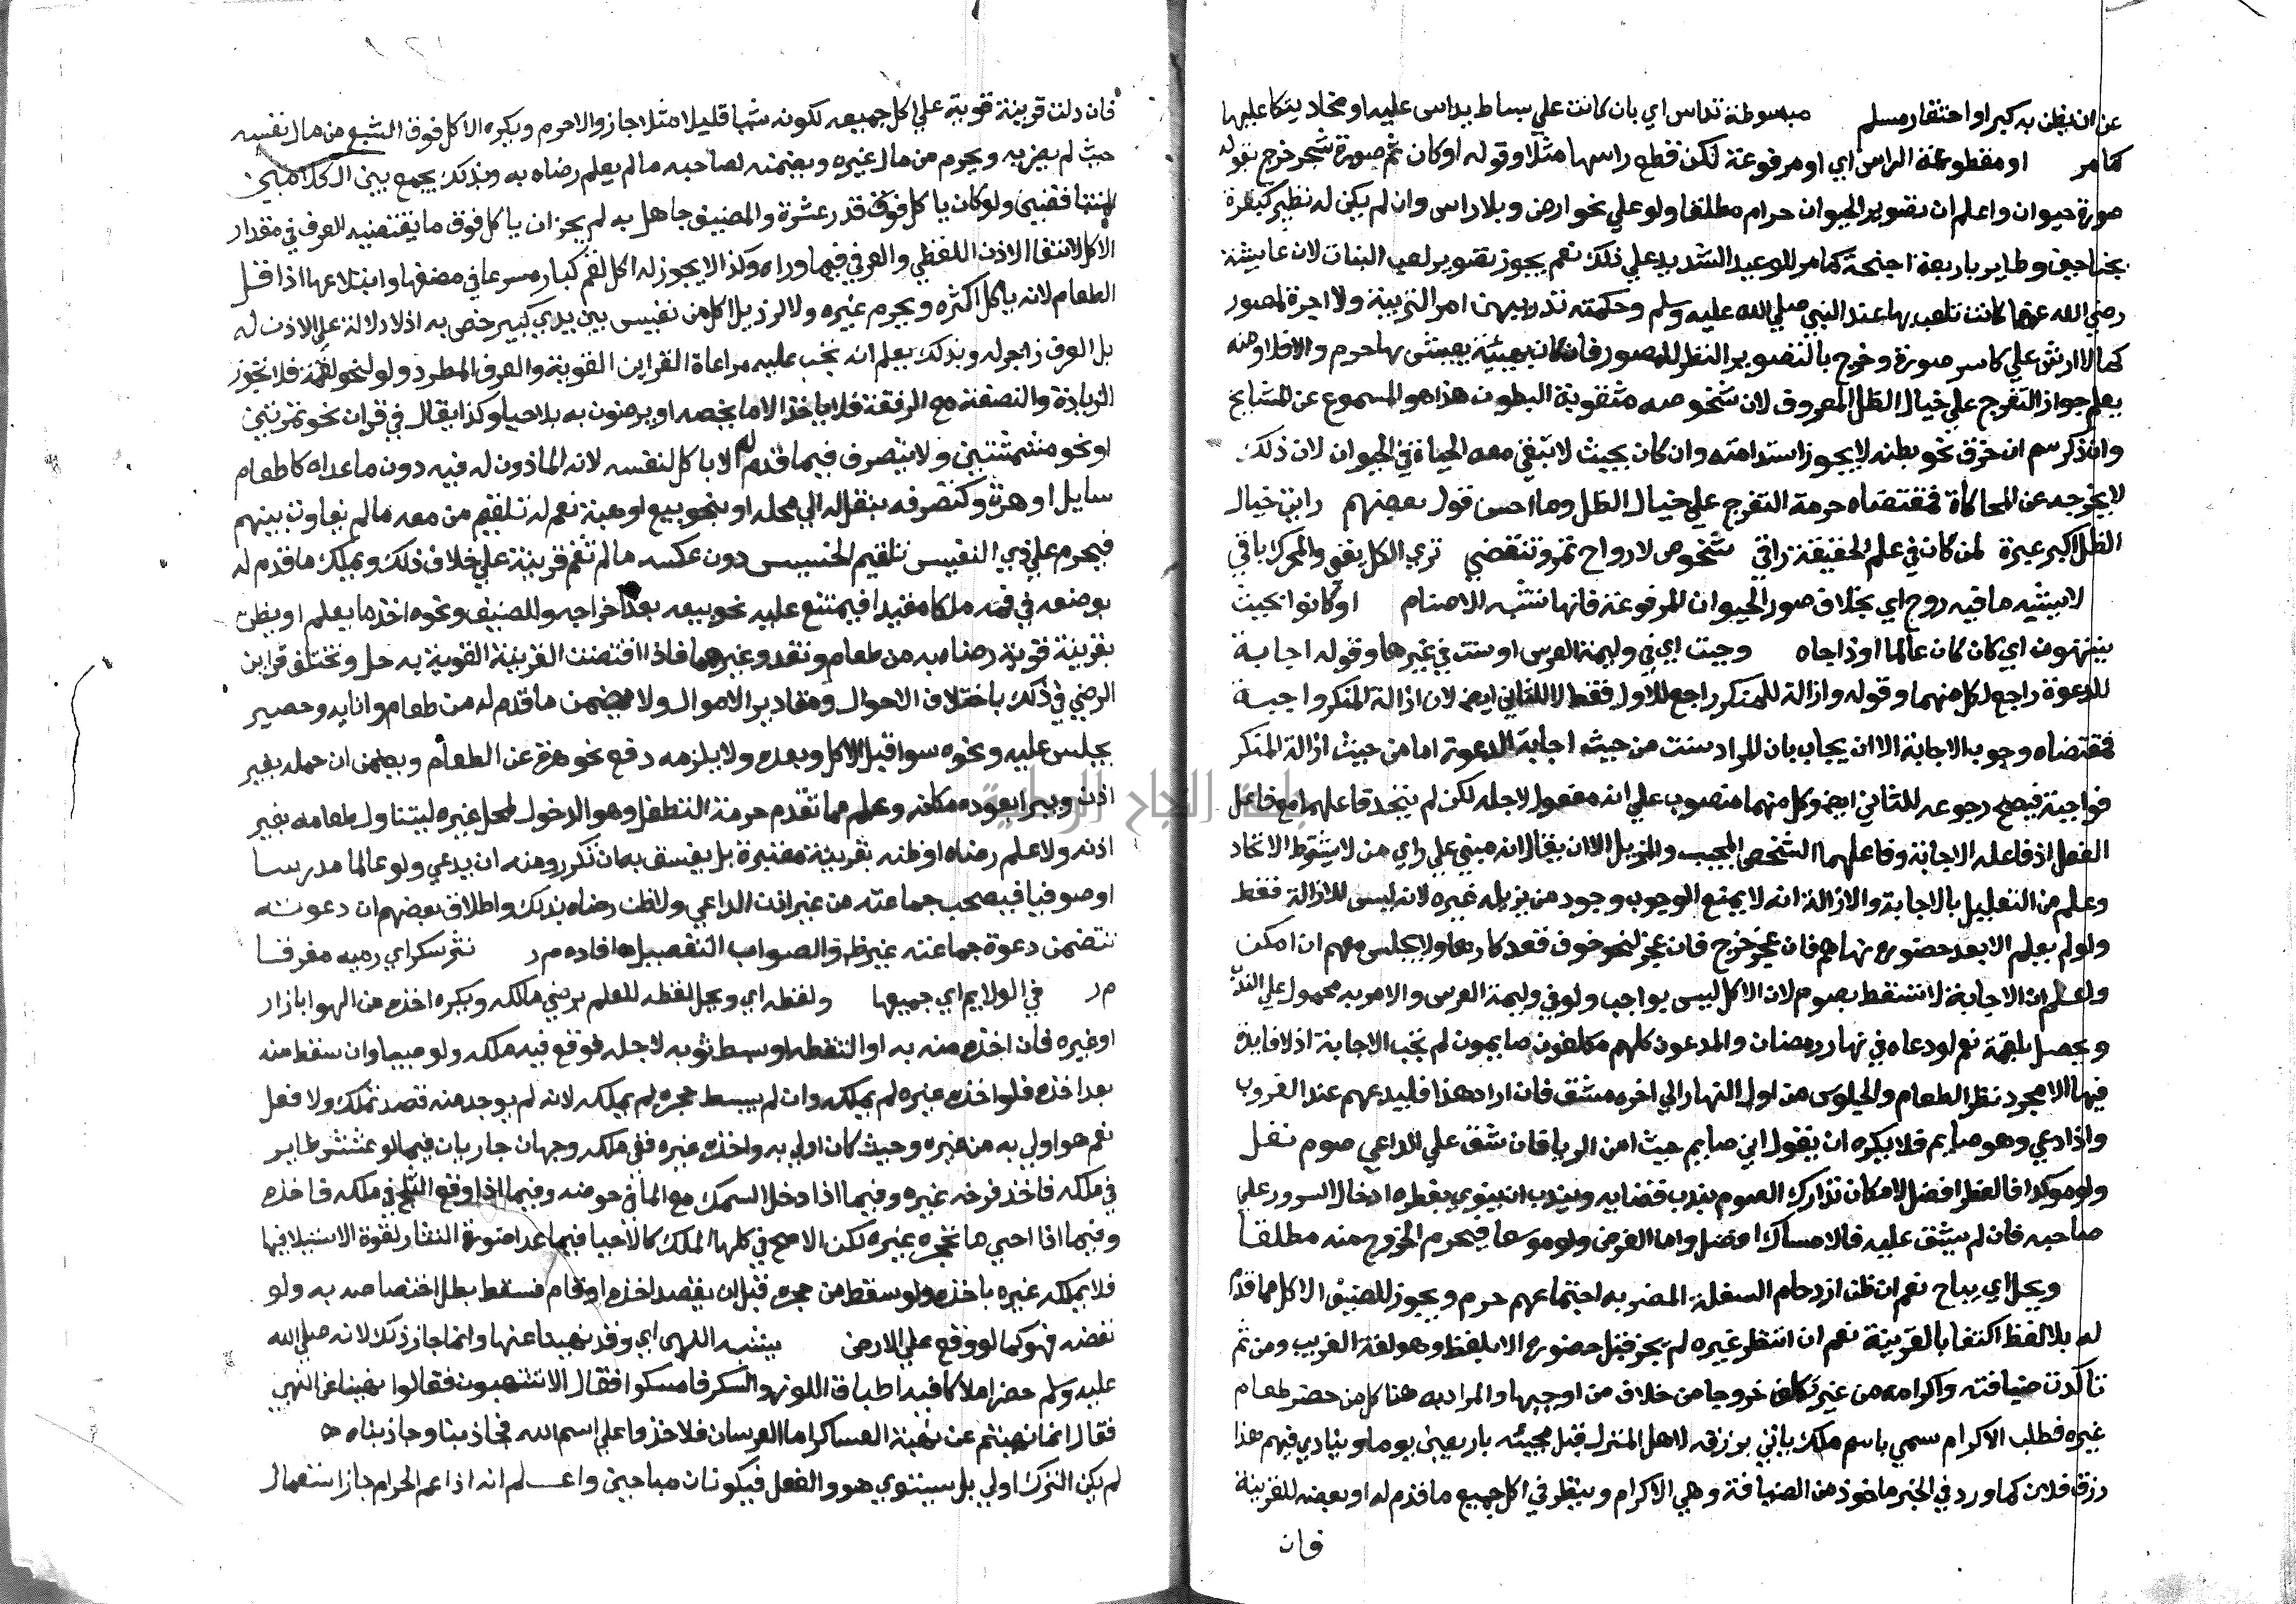 عن ان يظن به كبر او احتقار مسلم مبسوطة تداس اي بان كانت علي بساط يداس عليه او مخاد يتكا عليها
كما مر او مقطوعة الراس اي او مرفوعة لكن قطع راسها مثلا وقوله او كان ثم صورة شجر خرج بقوله
صورة حيوان واعلم ان تصوير الحيوان حرام مطلقا ولو علي نحو ارض وبلا راس وان لم يكن له نظير كبقرة
بجناحين وطاير باربعة اجنحة كما مر للوعيد الشديد علي ذلك نعم يجوز تصوير لعب البنات لان عايشة
رضي الله عنها كانت تلعب بها عند النبي صلي الله عليه وسلم وحكمته تدريبهن امر التربية ولا اجرة لمصور
كما لا ارش علي كاسر صورة وخرج بالتصوير النظر للمصور فان كان بهيئة يعيش بها حرم والا فلا ومنه
يعلم جواز التفرج علي خيال الظل المعروف لان شخوصه مثقوبة البطون هذا هو المسموع عن المشايخ
وان ذكر سم ان خرق نحو بطنه لا يجوز استدامته وان كان بحيث لا تبقي معه الحياة في الحيوان لان ذلك
لا يخرجه عن المحاكاة فمقتضاه حرمة التفرج علي خيال الظل وما احسن قول بعضهم رايت خيال
الظل اكبر عبرة لمن كان في علم الحقيقة راقي شخوص لارواح تمر وتنقضي تري الكل يفني والمحرك باقي
لا يشبه ما فيه روح اي بخلاف صور الحيوان المرفوعة فانها تشبه الاصنام او كانوا بحيث
ينتهون اي كان كان عالما او ذا جاه وجبت اي في وليمة العرس او سنت في غيرها وقوله اجابة
للدعوة راجع لكل منهما وقوله وازالة للمنكر راجع للاول فقط لا للثاني ايض لان ازالة المنكر واجبة
فمقتضاه وجوب الاجابة الا ان يجاب بان المراد سنت من حيث اجابة الدعوة اما من حيث ازالة المنكر
فواجبة فيصح رجوعه للثاني ايض وكل منهما منصوب علي انه مفعول لاجله لكن لم يتحد فاعلهما مع فاعل
الفعل اذ فاعله الاجابة وفاعلهما الشخص المجيب والمزيل الا ان يقال انه مبني علي راي من لا يشترط الاتحاد
وعلم من التعليل بالاجابة والازالة انه لا يمنع الوجوب وجود من يزيله غيره لانه ليس للازالة فقط
ولو لم يعلم الا بعد حضوره نهاهم فان عجز خرج فان عجز لنحو خوف قعد كارها ولا يجلس معهم ان امكن
واعلم ان الاجابة لا تسقط بصوم لان الاكل ليس بواجب ولو في وليمة العرس والامر به محمول علي الندب
ويحصل بلقمة نعم لو دعاه في نهار رمضان والمدعون كلهم مكلفون صايمون لم تجب الاجابة اذ لا فايدة
فيها الا مجرد نظر الطعام والجلوس من اول النهار الي اخره مشق فان اراد هذا فليدعهم عند الغروب
واذا دعي وهو صايم فلا يكره ان يقول اني صايم حيث امن الريا فان شق علي الداعي صوم نفل
ولو موكدا فالفطر افضل لامكان تدارك الصوم بندب قضايه ويندب ان ينوي بفطره ادخال السرور علي
صاحبه فان لم يشق عليه فالامساك افضل واما الفرض ولو موسعا فيحرم الخروج منه مطلقا
ويحل اي يباح نعم ان ظن ازدحام السفلة المضر به اجتماعهم حرم ويجوز للضيف الاكل مما قدم
له بلا لفظ اكتفا بالقرينة نعم ان انتظر غيره لم يجز قبل حضوره الا بلفظ وهو لغة الغريب ومن ثم
تاكدت ضيافته واكرامه من غير تكلف خروجا من خلاف من اوجبها والمراد به هنا كل من حضر طعام
غيره فطلب الاكرام سمي باسم ملك ياتي برزقه لاهل المنزل قبل مجيئه باربعين يوما وينادي فيهم هذا
رزق فلان كما ورد في الخبر ماخوذ من الضيافة وهي الاكرام وينظر في اكل جميع ما قدم له او بعضه للقرينة
فان
فان دلت قرينة قوية علي اكل جميعه لكونه شيا قليلا مثلا جاز والا حرم ويكره الاكل فوق الشبع من مال نفسه
حيث لم يضر به ويحرم من مال غيره ويضمنه لصاحبه ما لم يعلم رضاه به وبذلك يجمع بين الكلامين
المتناقضين ولو كان ياكل فوق قدر عشرة والمضيف جاهل به لم يجز ان ياكل فوق ما يقتضيه العرف في مقدار
الاكل لانتفا الاذن اللفظي والعرفي فيما وراه وكذا لا يجوز له اكل لقم كبار مسرعا في مضغها وابتلاعها اذا قل
الطعام لانه ياكل اكثره ويحرم غيره ولا لرذيل اكل من نفيس بين يدي كبير خص به اذ لا دلالة علي الاذن له
بل العرف زاجر له وبذلك يعلم انه تجب عليه مراعاة القراين القوية والعرف المطرد ولو لنحو لقمة فلا تجوز
الزيادة والنصفة مع الرفقة فلا ياخذ الا ما يخصه او يرضون به بلا حيا وكذا يقال في قران نحو تمرتين
او نحو مشمشتين ولا يتصرف فيما قدم له الا باكل لنفسه لانه الماذون له فيه دون ما عداه كاطعام
سايل او هرة وكتصرفه بنقل له الي محله او بنحو بيع او هبة نعم له تلقيم من معه ما لم يفاوت بينهم
فيحرم علي ذي النفيس تلقيم الخسيس دون عكسه ما لم تقم قرينة علي خلاف ذلك ويملك ما قدم له
بوضعه في فمه ملكا مقيدا فيمتنع عليه نحو بيعه بعد اخراجه وللضيف ونحوه اخذ ما يعلم او يظن
بقرينة قوية رضاه به من طعام ونقد وغيرهما فاذا اقتضت القرينة القوية به حل وتختلف قراين
الرضي في ذلك باختلاف الاحوال ومقادير الاموال ولا يضمن ما قدم له من طعام وانايه وحصير
يجلس عليه ونحوه سوا قبل الاكل وبعده ولا يلزمه دفع نحو هرة عن الطعام ويضمن ان حمله بغير
اذن ويبرا بعوده مكانه وعلم مما تقدم حرمة التطفل وهو الدخول لمحل غيره ليتناول طعامه بغير
اذنه ولا علم رضاه او ظنه بقرينة معتبرة بل يفسق به ان تكرر ومنه ان يدعي ولو عالما مدرسا
او صوفيا فيصحب جماعته من غير اذن الداعي ولا ظن رضاه بذلك واطلاق بعضهم ان دعوته
تتضمن دعوة جماعته غير ظ والصواب التفصيل افاده م ر نثر سكر اي رميه مفرقا
م ر في الولايم اي جميعها ولقطه اي ويحل لقطه للعلم برضي مالكه ويكره اخذه من الهوا بازار
او غيره فان اخذه منه به او التقطه او بسط ثوبه لاجله فوقع فيه ملكه ولو صبيا وان سقط منه
بعد اخذه فلو اخذه غيره لم يملكه وان لم يبسط حجره لم يملكه لانه لم يوجد منه قصد تملك ولا فعل
نعم هو اولي به من غيره وحيث كان اولي به واخذه غيره ففي ملكه وجهان جاريان فيما لو عشش طاير
في ملكه فاخذ فرخه غيره وفيما اذا دخل السمك مع الما في حوضه وفيما اذا وقع الثلج في ملكه فاخذه
وفيما اذا احيي ما تحجره غيره لكن الاصح في كلها الملك كالاحيا فيما عدا صورة النثار لقوة الاستيلا فيها
فلا يملكه غيره باخذه ولو سقط من حجره قبل ان يقصد اخذه او قام فسقط بطل اختصاصه به ولو
نفضه فهو كما لو وقع علي الارض يشبه النهبي اي وقد نهينا عنها وانما جاز ذلك لانه صلي الله
عليه وسلم حضر املاكا فيه اطباق اللوز والسكر فامسكوا فقال الا تنتهبون فقالوا نهيتنا عن النهبي
فقال انما نهيتكم عن نهبة العساكر اما العرسان فلا خذوا علي اسم الله فجاذبنا وجاذبناه
لم يكن الترك اولي بل يستوي هو والفعل فيكونان مباحين واعلم انه اذا عم الحرام جاز استعمال